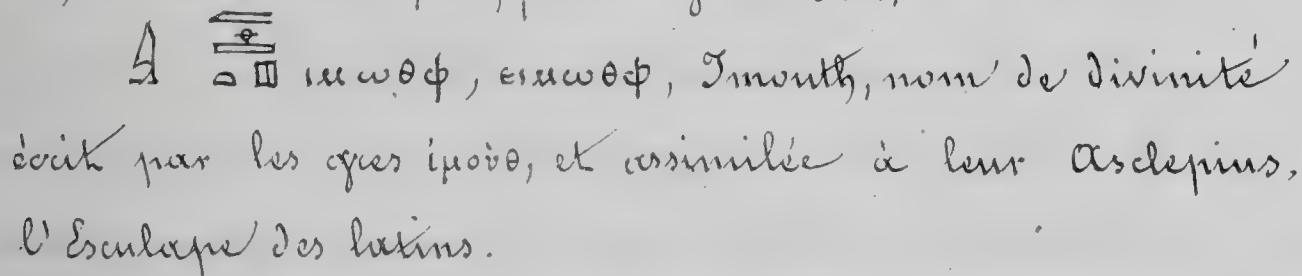 ⲓⲙⲱⲑⲫ, ⲉⲓⲙⲱⲑⲫ, Imouth, nom de divinité
écrit par les grecs ἰμοὺθ, et assimilée à leur Asclepius,
l'Esculape des latins.